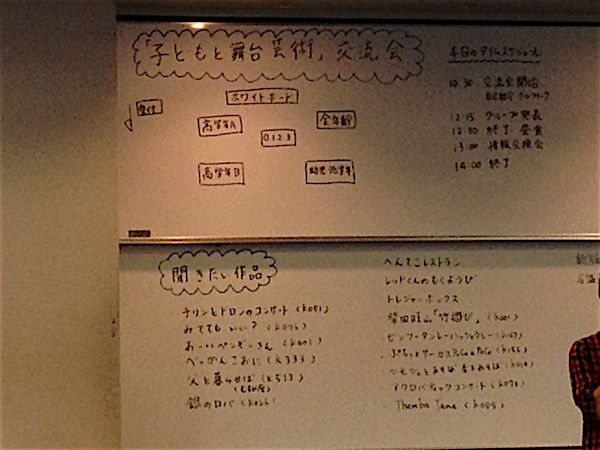 「子どもと舞台芸術」交流会
本日のタイムスケジュール
ホワイトボード
受付
高学年A
全年齢
0123
高学年B
幼児低学年
10:30 交流会開始
12:15 グループ発表
12:50 終了・昼食
13:00 情報交換会
14:00 終了
聞きたい作品
チリンとドロンのコンサート (K051)
みててもいい?
おーいペンギンさん (K401)
べっかんこおに (K333)
父と暮らせば (K513)
銀のロバ
へんてこレストラン
レッドくんのもくようび
トレジャーボックス
「竹遊び」 (K001)
アクロバティックコンサート (K071)
Themba Tana (K085)